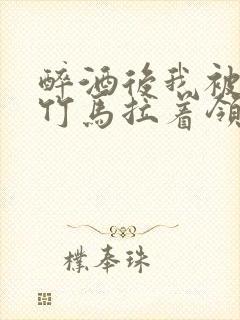 醉酒後我被
竹馬拉着領
樸奉珠